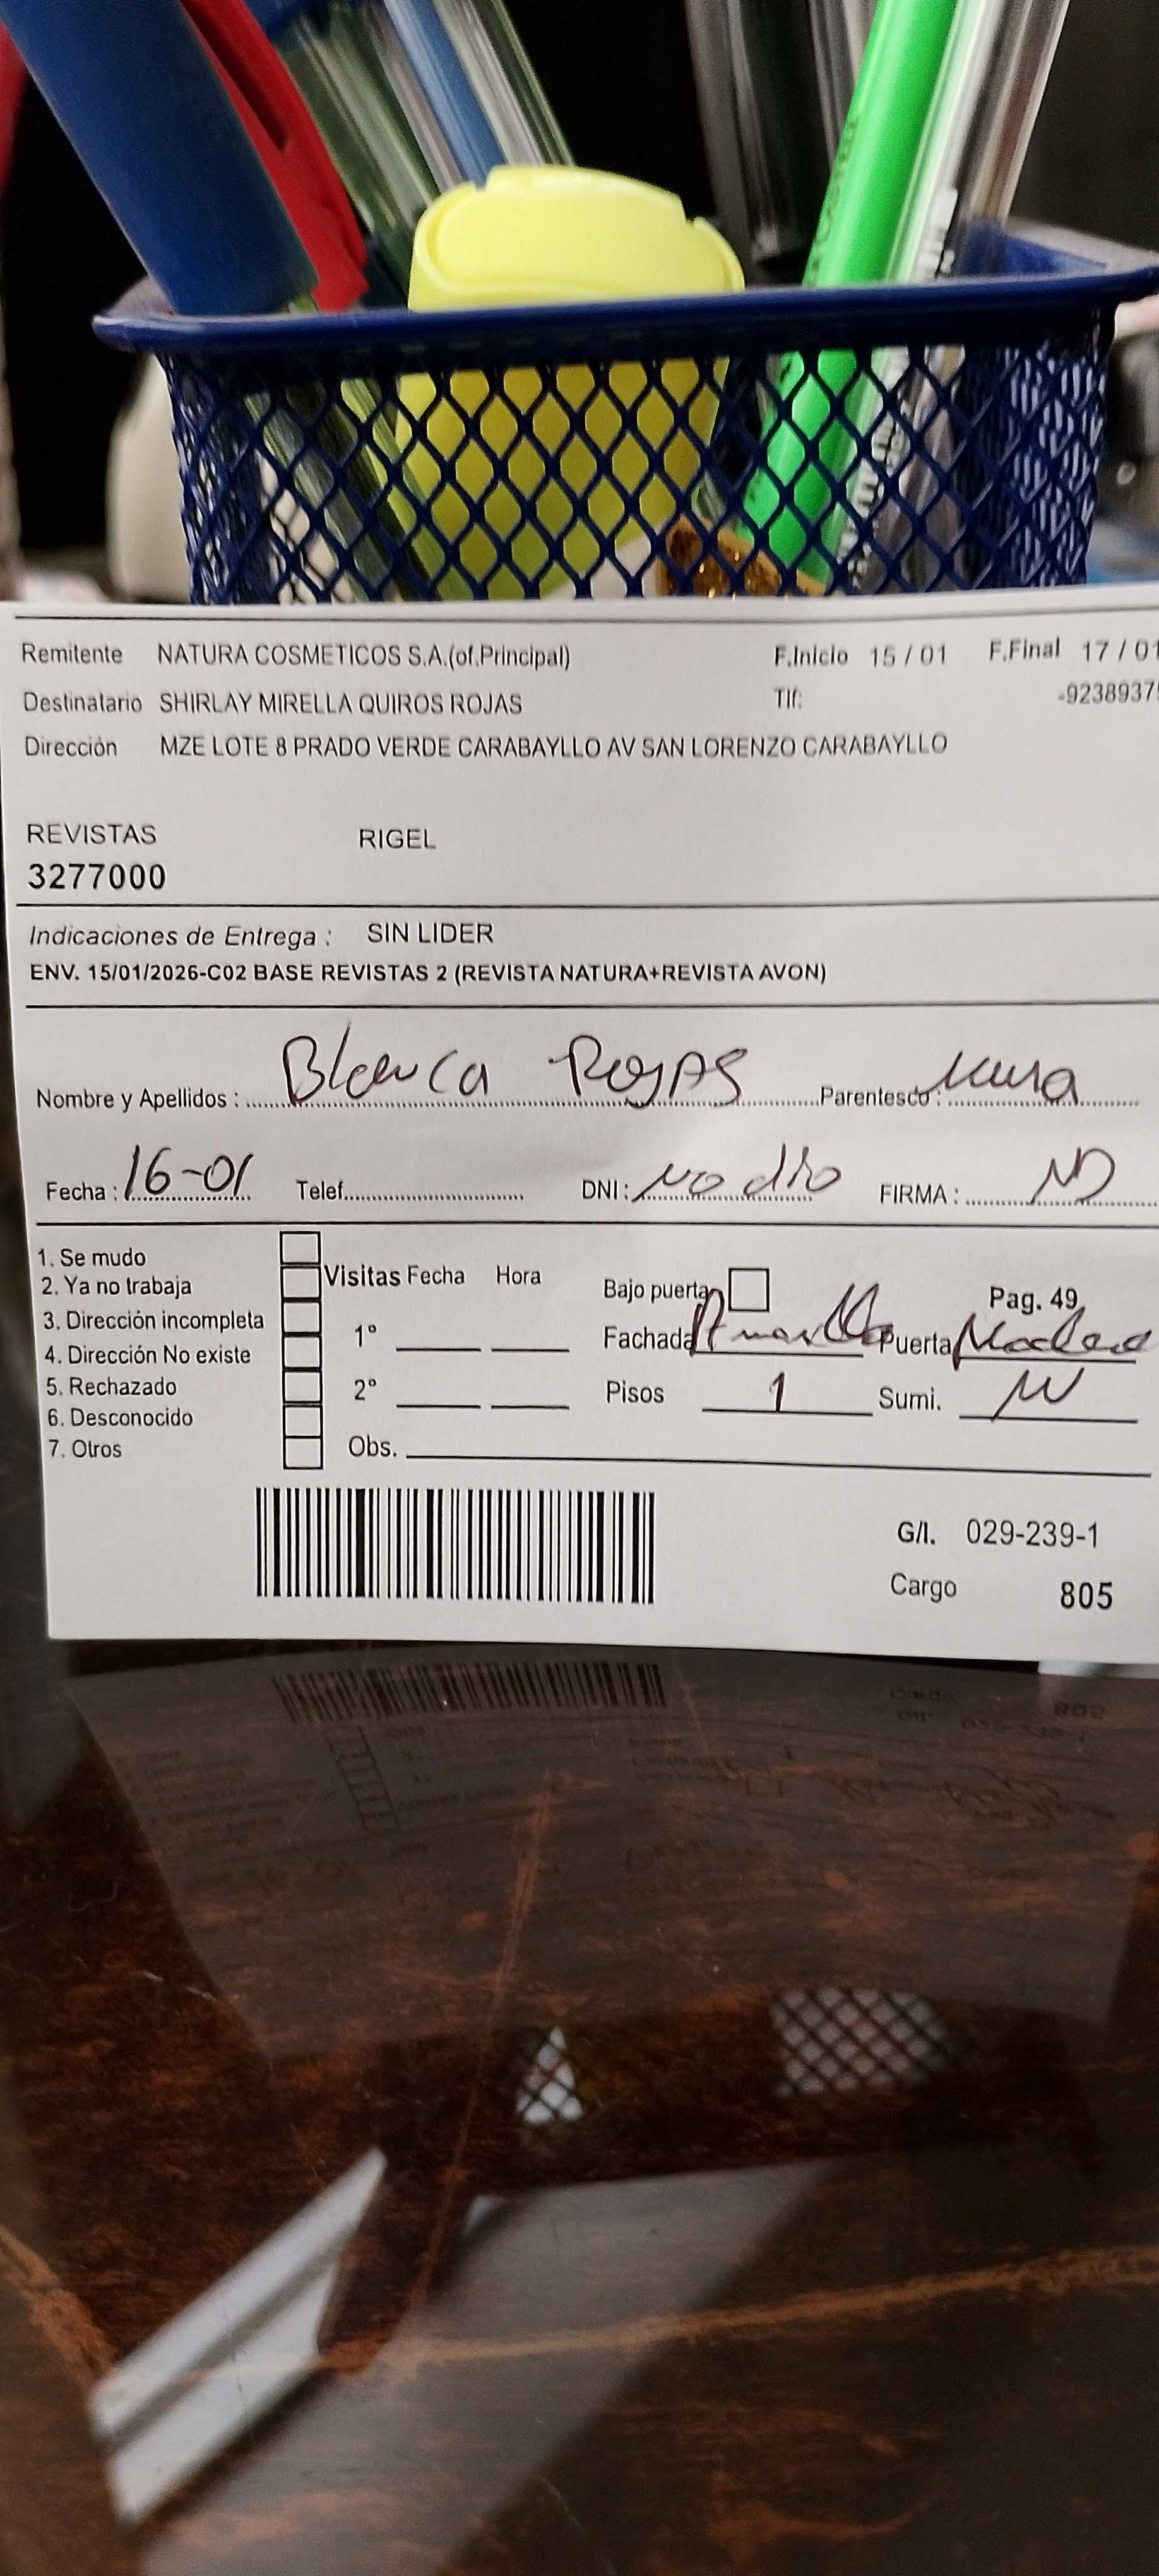 Remitente NATURA COSMETICOS S.A.(of.Principal) F.Inicio 15 / 01 F.Final 17 / 01
Destinatario SHIRLAY MIRELLA QUIROS ROJAS Tlf: -9238937
Dirección MZE LOTE 8 PRADO VERDE CARABAYLLO AV SAN LORENZO CARABAYLLO
REVISTAS RIGEL
3277000
Indicaciones de Entrega : SIN LIDER
ENV. 15/01/2026-C02 BASE REVISTAS 2 (REVISTA NATURA+REVISTA AVON)
Nombre y Apellidos : Blanca Rojas Parentesco :
Fecha : 16-01 Telef. DNI : No dio FIRMA :
1. Se mudo
2. Ya no trabaja Visitas Fecha Hora Bajo puerta Pag. 49
3. Dirección incompleta 1° Fachada Amarilla Puerta Madera
4. Dirección No existe
5. Rechazado 2° Pisos 1 Sumi.
6. Desconocido
7. Otros Obs.
G/I. 029-239-1
Cargo 805